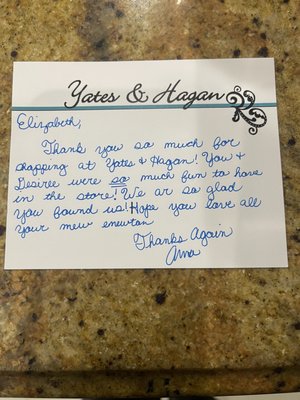 Yates & Hagan
Elizabeth,
Thank you so much for
shopping at Yates & Hagan! You &
Desiree were so much fun to have
in the store! We ar so glad
you found us! Hope you love all
your mew enewton.
Thanks Again
Anna